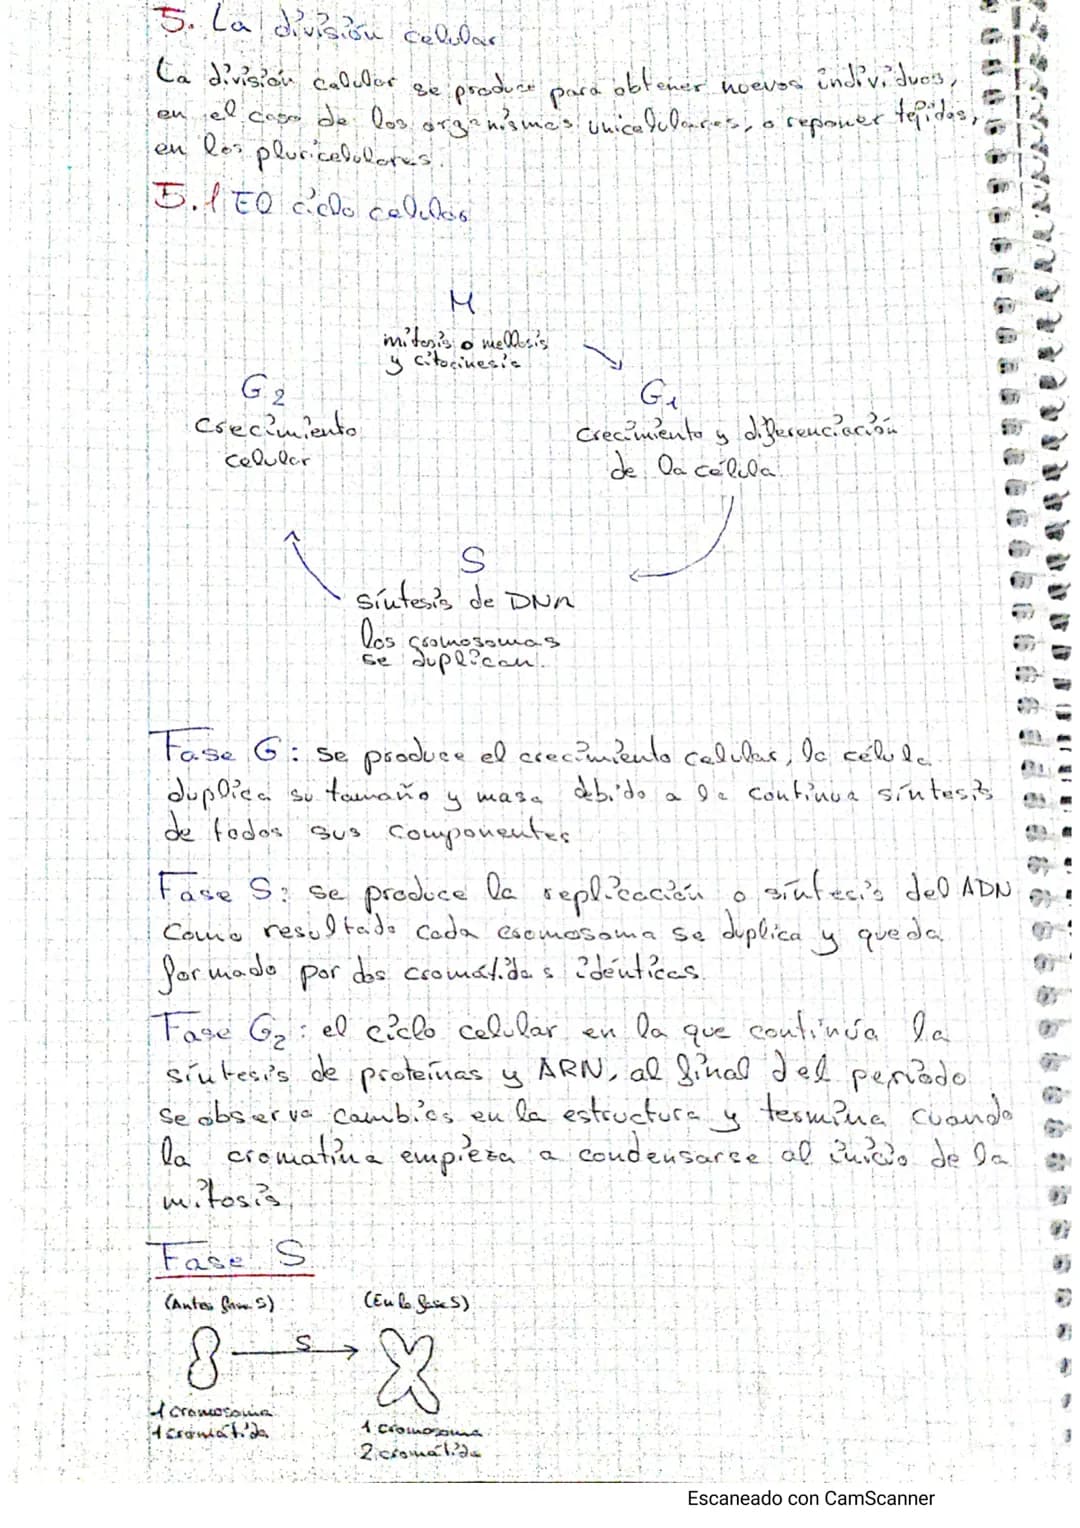 5. La división celular
La división celular se produce para obtener nuevos individuos,
en el caso de los organismos unicelulares, o reponer tejidos,
en los pluricelulares.
5.1 El ciclo celular
M
mitosis o meilosis
y citocinesis
G2
Crecimiento
celular
G1
crecimiento y diferenciación
de la célula
S
síntesis de DNA
los cromosomas
se duplican.
Fase G: se produce el crecimiento celular, la célula
duplica su tamaño y masa debido a la continua síntesis
de todos sus componentes
Fase S: se produce la replicación o síntesis del ADN
como resultado cada cromosoma se duplica y queda
formado por dos cromátidas idénticas.
Fase G2: el ciclo celular en la que continúa la
síntesis de proteínas y ARN, al final del periodo
se observa cambios en la estructura y termina cuando
la cromatina empieza a condensarse al inicio de la
mitosis.
Fase S
(Antes fase S) (En la fase S)
S
1 cromosoma
1 cromátida
1 cromosoma
2 cromátida
Escaneado con CamScanner